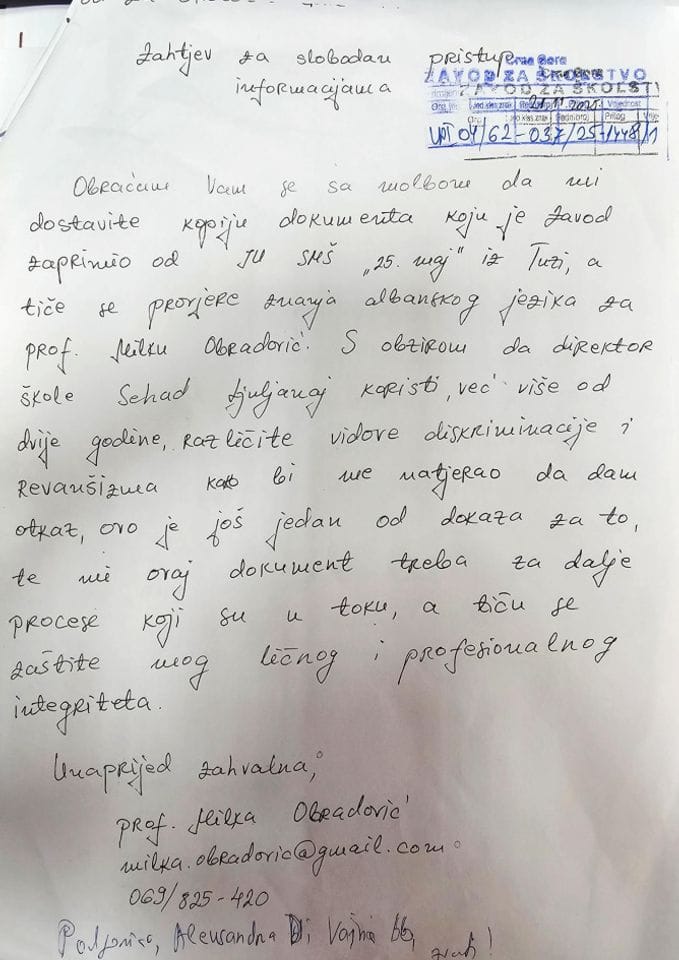 Zahtjev za slobodan pristup
informacijama
Crna Gora
ZAVOD ZA ŠKOLSTVO
ZAVOD ZA ŠKOLST
UPI 04/62-037/25-1448/1
Obraćam Vam se sa molbom da mi
dostavite kopiju dokumenta koju je Zavod
zaprimio od JU SMŠ „25. maj" iz Tuzi, a
tiče se provjere znanja albanskog jezika za
prof. Milku Obradović. S obzirom da direktor
škole Sehad Ljuljanaj koristi, već više od
dvije godine, različite vidove diskriminacije i
revanšizma kako bi me natjerao da dam
otkaz, ovo je još jedan od dokaza za to,
te mi ovaj dokument treba za dalje
procese koji su u toku, a tiču se
zaštite mog ličnog i profesionalnog
integriteta.
Unaprijed zahvalna,
prof. Milka Obradović
milka.obradovic@gmail.com
069/825-420
Podgorica, Aleksandra